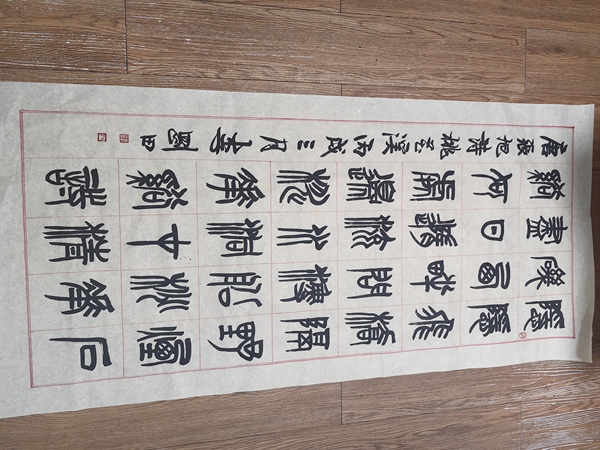 隱隱飛橋隔野煙石
磯西畔問漁船桃花
盡日隨流水洞在清
谿何處邊桃花谿詩
唐張旭詩桃花溪丙戌三月